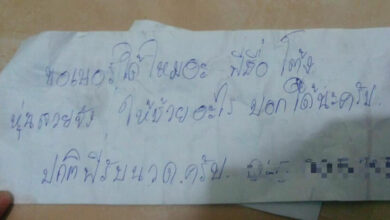 ขอเบอร์ได้ไหมอะ พี่ชื่อ โต้ง
หุ่นสวยจัง ให้ช่วยอะไร บอกได้นะครับ.
ปกติพี่รับนวด.ครับ.